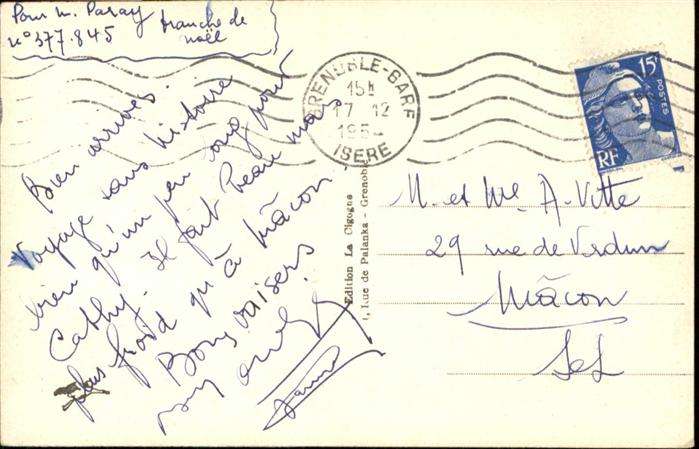 Pour M. Paray
n° 377.845
tranche de
noël
Bien arrivés.
Voyage sans histoire
bien qu'un peu long pour
Cathy. Il fait beau mais
plus froid qu'à Mâcon.
Bons baisers
GRENOBLE-GARE
15H
17-12
195
ISERE
15F
POSTES
RF
Edition La Cigogne
1, Rue de Palanka - Grenoble
M. et Me A. Vitte
29 rue de Verdun
Mâcon
SeL